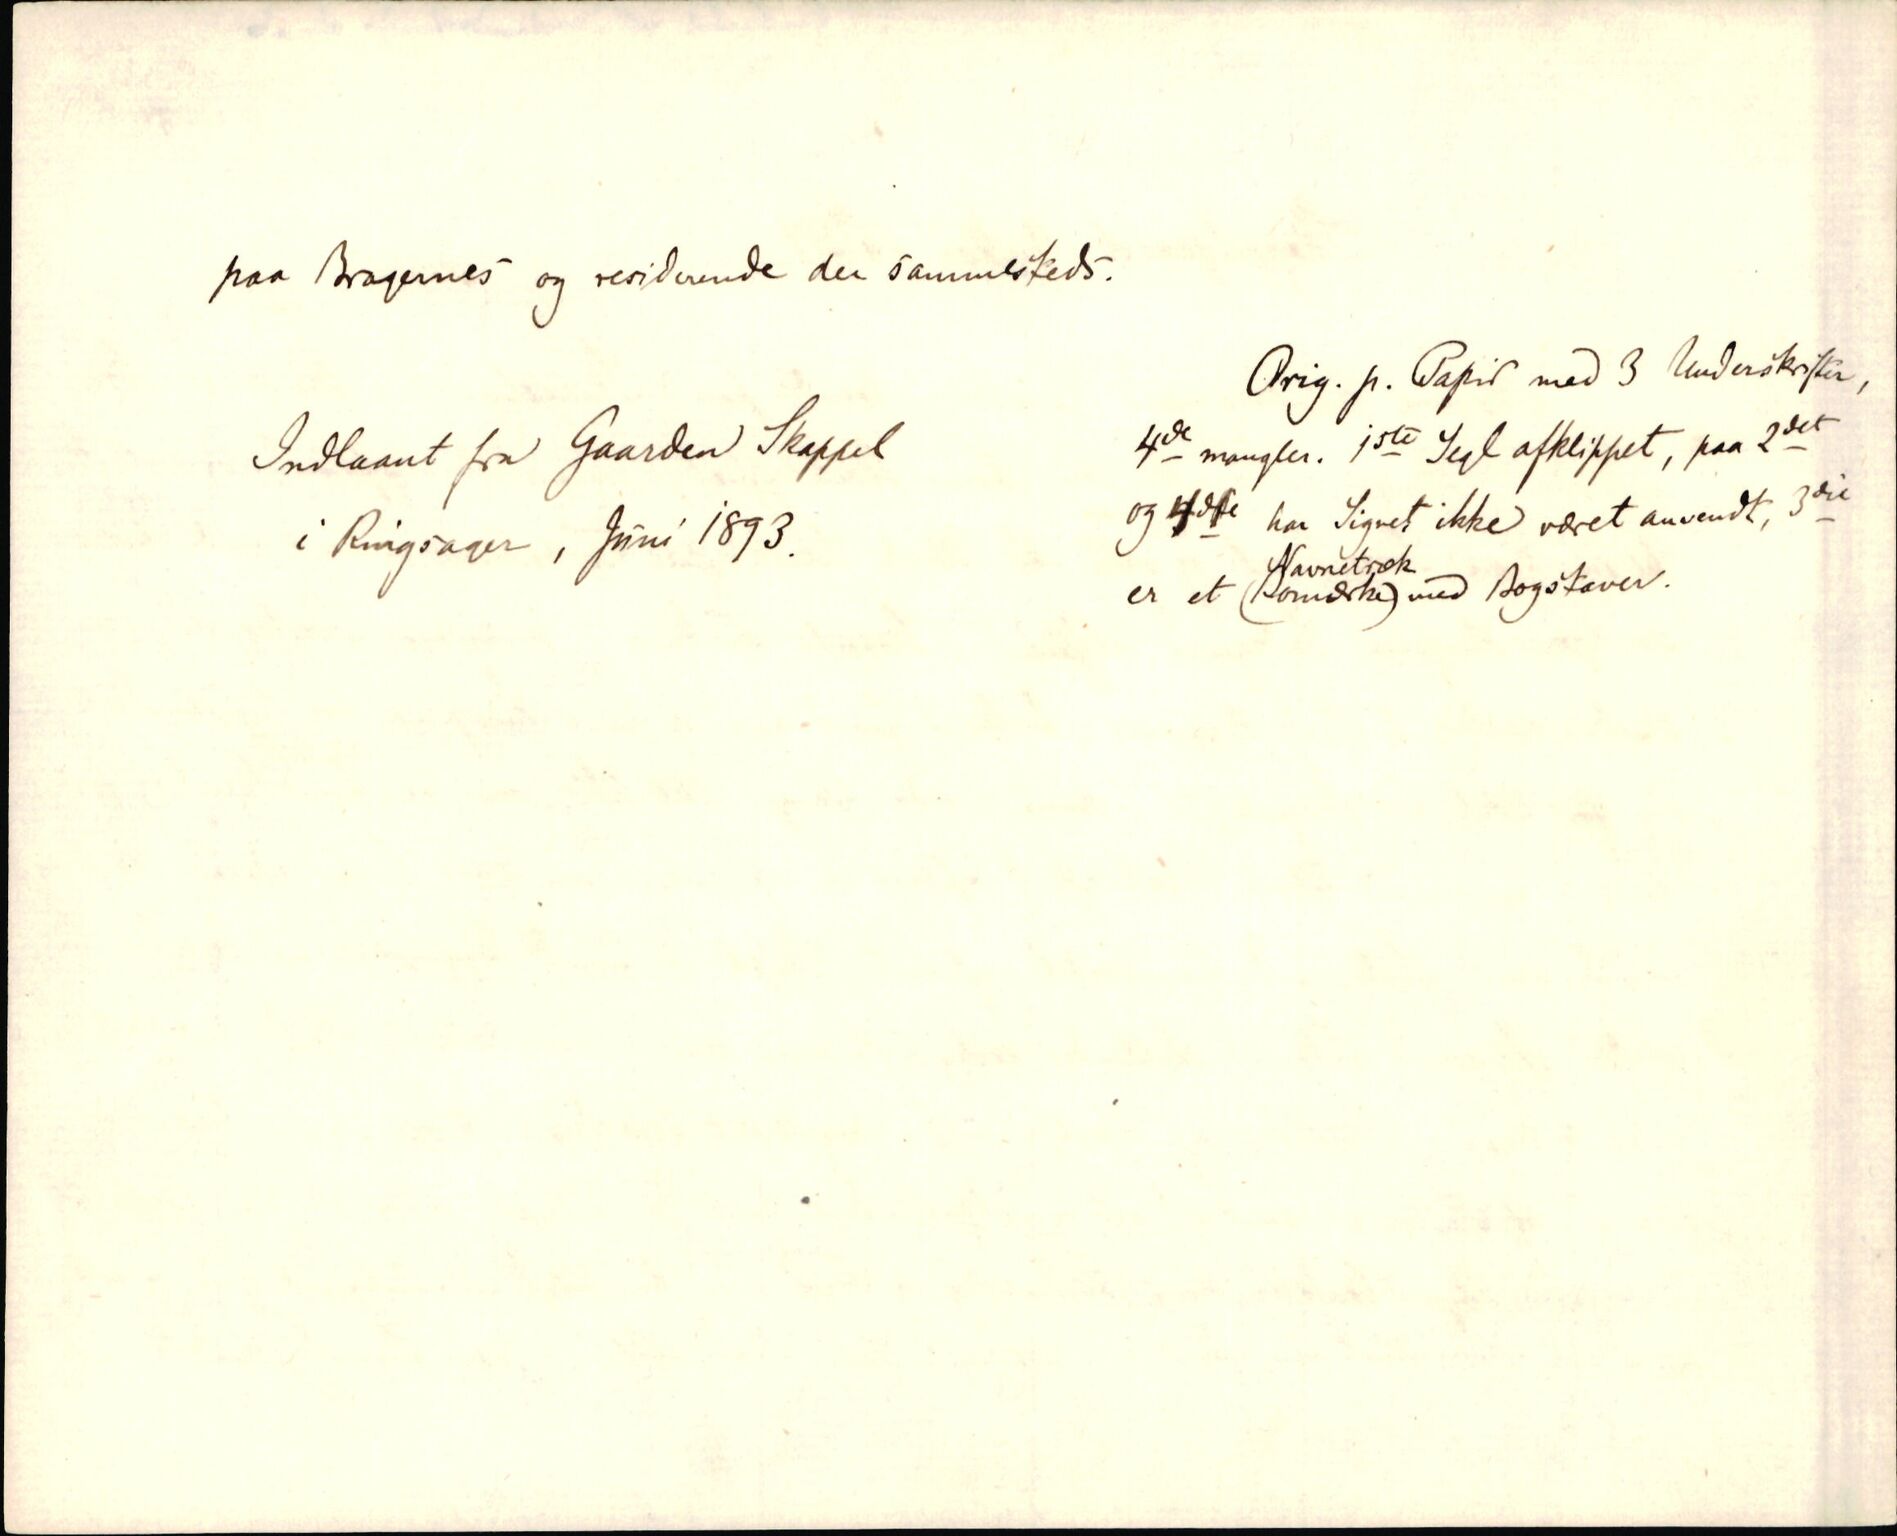 paa Bragernes og residerende der sammesteds.
Indlaant fra Gaarden Skappel
i Ringsager, Juni 1893.
Orig. p. Papir med 3 Underskrifter,
4de mangler. 1ste Segl afklippet, paa 2det
og 4de har Signet ikke været anvendt, 3die
Navnetræk
er et (Bomærke) med Bogstaver.